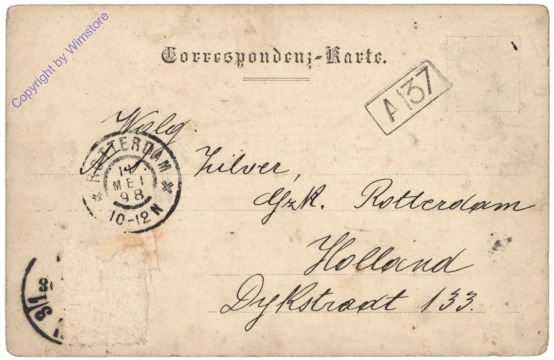 Copyright by Wimstore
Correspondenz-Karte.
A 37
Zilver,
ROTTERDAM
14
MEI
98
10-12N
Gzk. Rotterdam
Holland
Dykstraat 133.